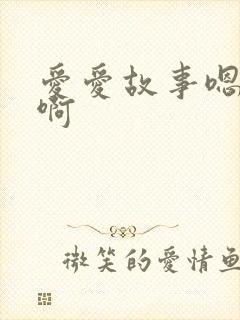 愛愛故事嗯
啊
微笑的愛情魚